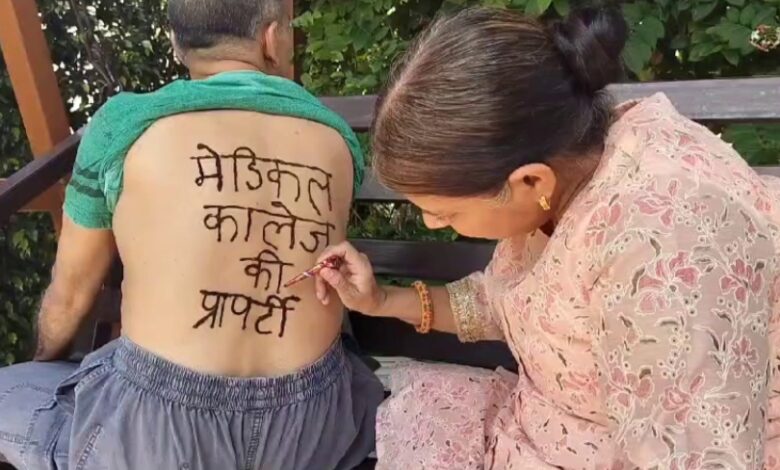 मेडिकल
कालेज
की
प्रापर्टी